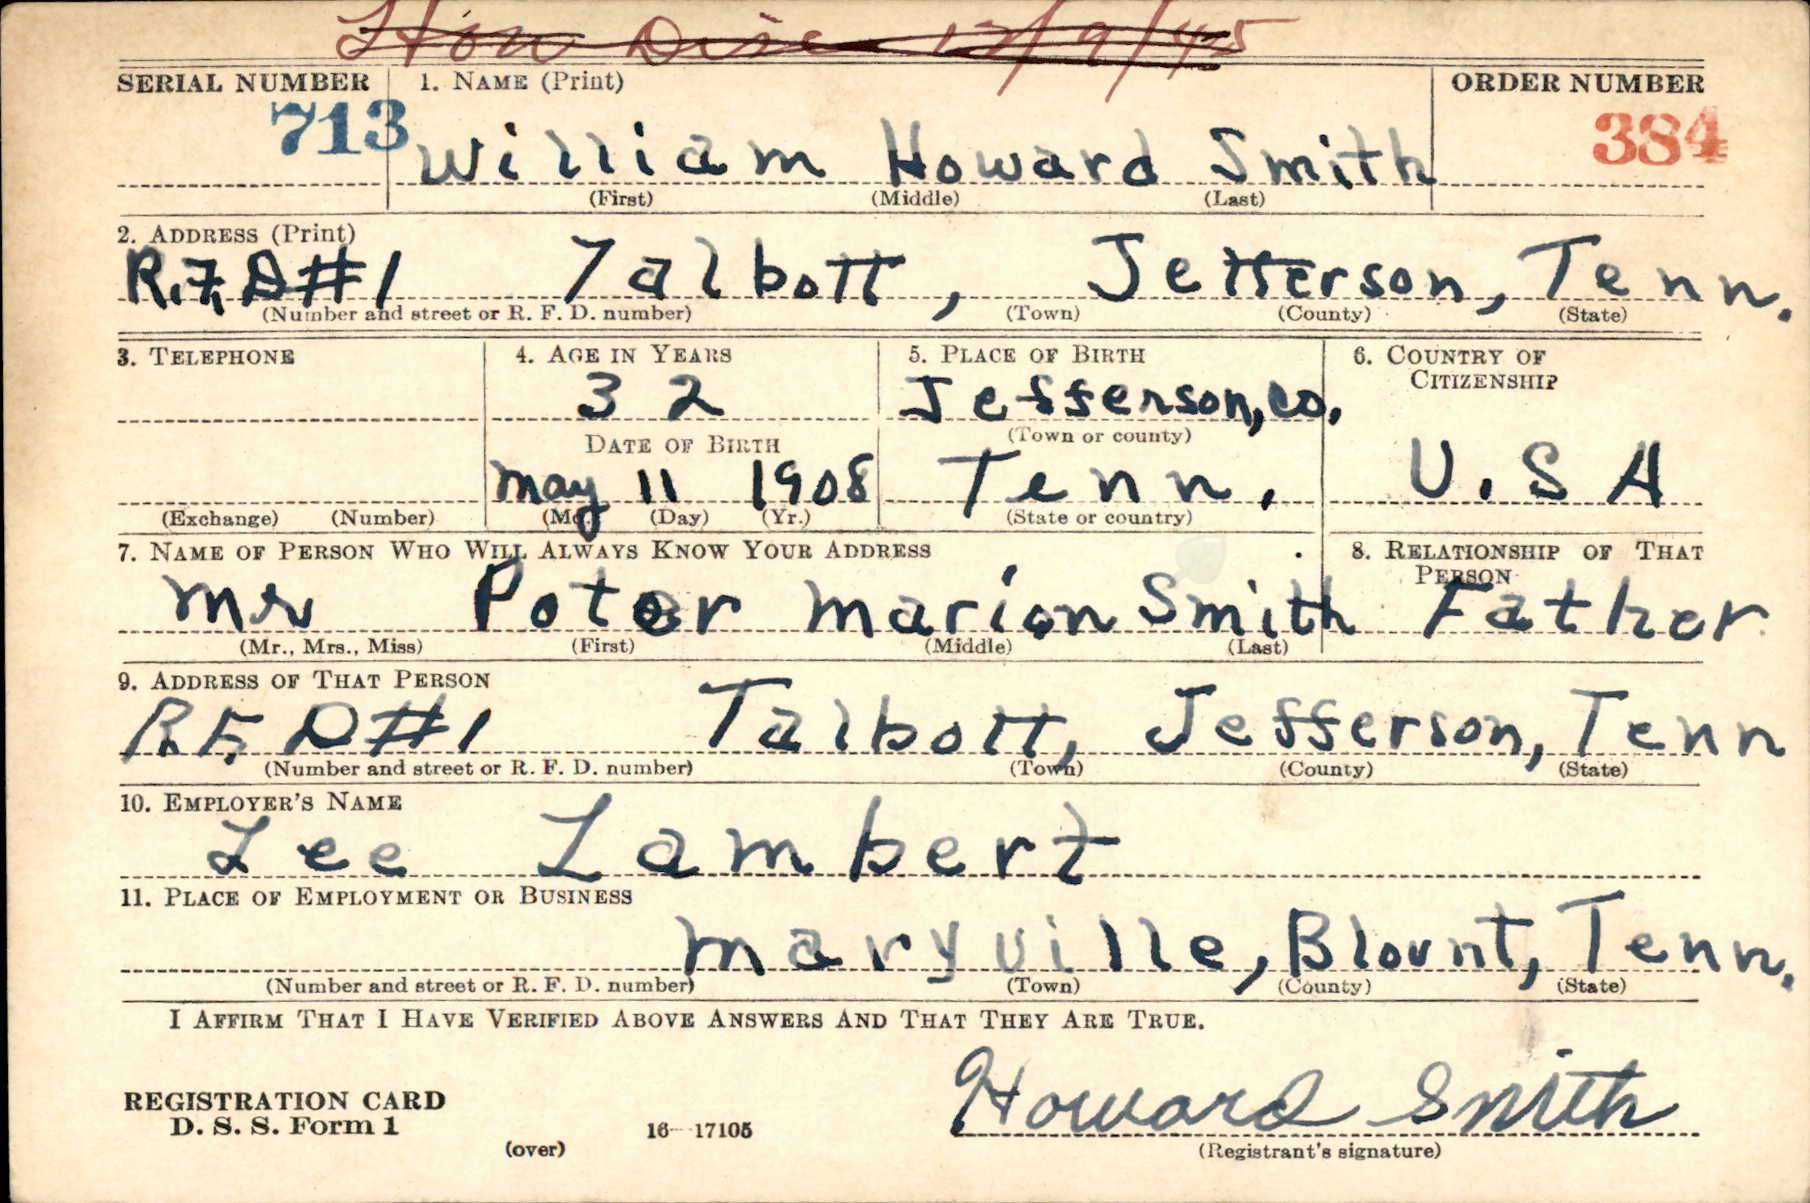 Hon Disc 12/9/45
SERIAL NUMBER 1. NAME (Print) ORDER NUMBER
713 William Howard Smith 384
(First) (Middle) (Last)
2. ADDRESS (Print)
R.F.D#1 Talbott, Jefferson, Tenn.
(Number and street or R. F. D. number) (Town) (County) (State)
3. TELEPHONE 4. AGE IN YEARS 5. PLACE OF BIRTH 6. COUNTRY OF
CITIZENSHIP
32 Jefferson, co.
DATE OF BIRTH (Town or county)
May 11 1908 Tenn. U.S A
(Exchange) (Number) (Mo.) (Day) (Yr.) (State or country)
7. NAME OF PERSON WHO WILL ALWAYS KNOW YOUR ADDRESS 8. RELATIONSHIP OF THAT
PERSON
Mr Poter Marion Smith Father
(Mr., Mrs., Miss) (First) (Middle) (Last)
9. ADDRESS OF THAT PERSON
R.F.D#1 Talbott, Jefferson, Tenn
(Number and street or R. F. D. number) (Town) (County) (State)
10. EMPLOYER'S NAME
Lee Lambert
11. PLACE OF EMPLOYMENT OR BUSINESS
Maryville, Blount, Tenn.
(Number and street or R. F. D. number) (Town) (County) (State)
I AFFIRM THAT I HAVE VERIFIED ABOVE ANSWERS AND THAT THEY ARE TRUE.
Howard Smith
REGISTRATION CARD
D. S. S. Form 1
(over) 16—17105 (Registrant's signature)